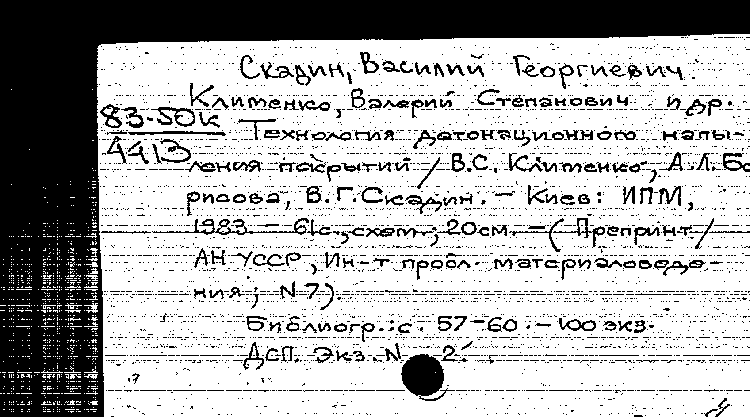 Скадин, Василий Георгиевич.
Клименко, Валерий Степанович и др.
83-50к
4413
Технология детонационного напы-
ления покрытий / В.С. Клименко, А.Л. Бо
рисова, В.Г. Скадин. — Киев: ИПМ,
1983. — 61с., схем.; 20см. — (Препринт /
АН УССР, Ин-т пробл. материаловеде-
ния; N 7).
Библиогр.: с. 57-60. — 100 экз.
ДСП. Экз. N 2.